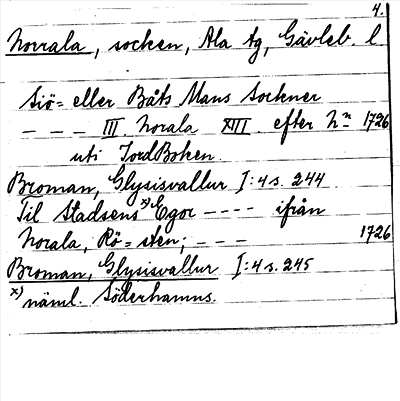 4.
Norrala, socken, Ala tg, Gävleb. l
Siö= eller Båts Mans Sockner
– – – III Norala XIII. efter N:n 1726
uti JordBoken.
Broman, Glysisvallur I:4 s. 244.
Til Stadsens x) Egor – – – – ifrån
Norala, Rö=sten; – – – 1726
Broman, Glysisvallur I:4 s. 245
x) näml. Söderhamns.